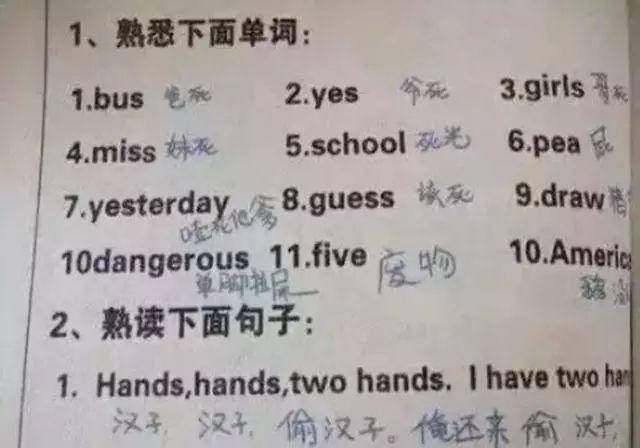 1、熟悉下面单词：
1.bus 爸死 2.yes 爷死 3.girls 哥死
4.miss 妹死 5.school 死光 6.pea 屁
7.yesterday 8.guess 该死 9.draw
10dangerous 单脚拉屎 11.five 废物 10.Americ
2、熟读下面句子：
1. Hands,hands,two hands. I have two han
汉子，汉子，偷汉子。俺还来偷汉子，